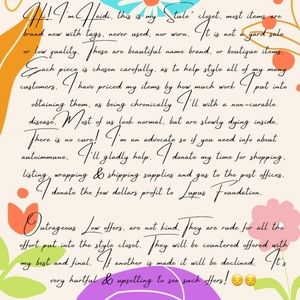 Hi! I'm Heidi, this is my "Style" closet, most items are
brand new with tags, never used, nor worn. It is not a yard sale
or low quality. These are beautiful name brand, or boutique items.
Each piece is chosen carefully, as to help style all of my many
customers. I have priced my items by how much work I put into
obtaining them, as being chronically Ill with a non-curable
disease. Most of us look normal, but are slowly dying inside.
There is no cure! I'm an advocate so if you need info about
autoimmune, I'll gladly help. I donate my time for shopping,
listing, wrapping & shipping supplies and gas to the post offices.
I donate the few dollars profit to Lupus Foundation.
Outrageous Low offers, are not kind. They are rude for all the
effort put into the style closet. They will be countered offered with
my best and final. If another is made it will be declined. It's
very hurtful & upsetting to see such offers! 😔😔